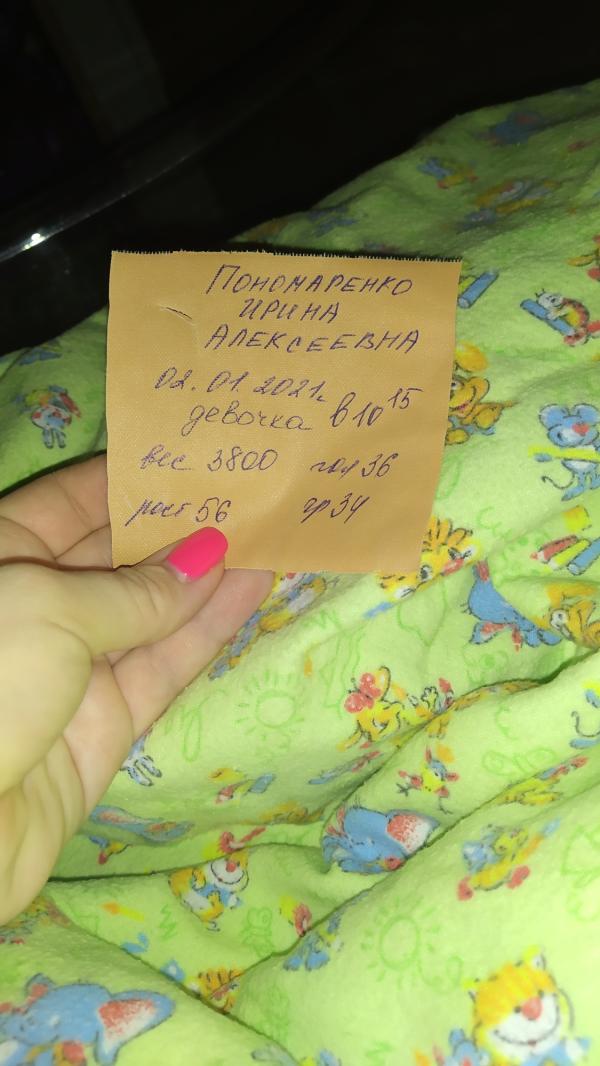 ПОНОМАРЕНКО
ИРИНА
АЛЕКСЕЕВНА
02.01.2021г.
девочка в 10 15
вес 3800 гол 36
рост 56 гр 34